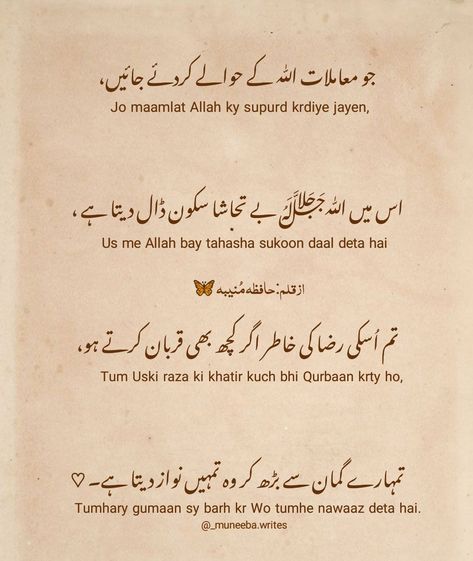 جو معاملات اللہ کے حوالے کردئے جائیں،
Jo maamlat Allah ky supurd krdiye jayen,
اس میں اللہ ﷻ بے تحاشا سکون ڈال دیتا ہے ،
Us me Allah bay tahasha sukoon daal deta hai
ازقلم:حافظہ مُنیبہ 🦋
تم اُسکی رضا کی خاطر اگر کچھ بھی قربان کرتے ہو،
Tum Uski raza ki khatir kuch bhi Qurbaan krty ho,
تمہارے گمان سے بڑھ کر وہ تمہیں نواز دیتا ہے۔ ♡
Tumhary gumaan sy barh kr Wo tumhe nawaaz deta hai.
@_muneeba.writes